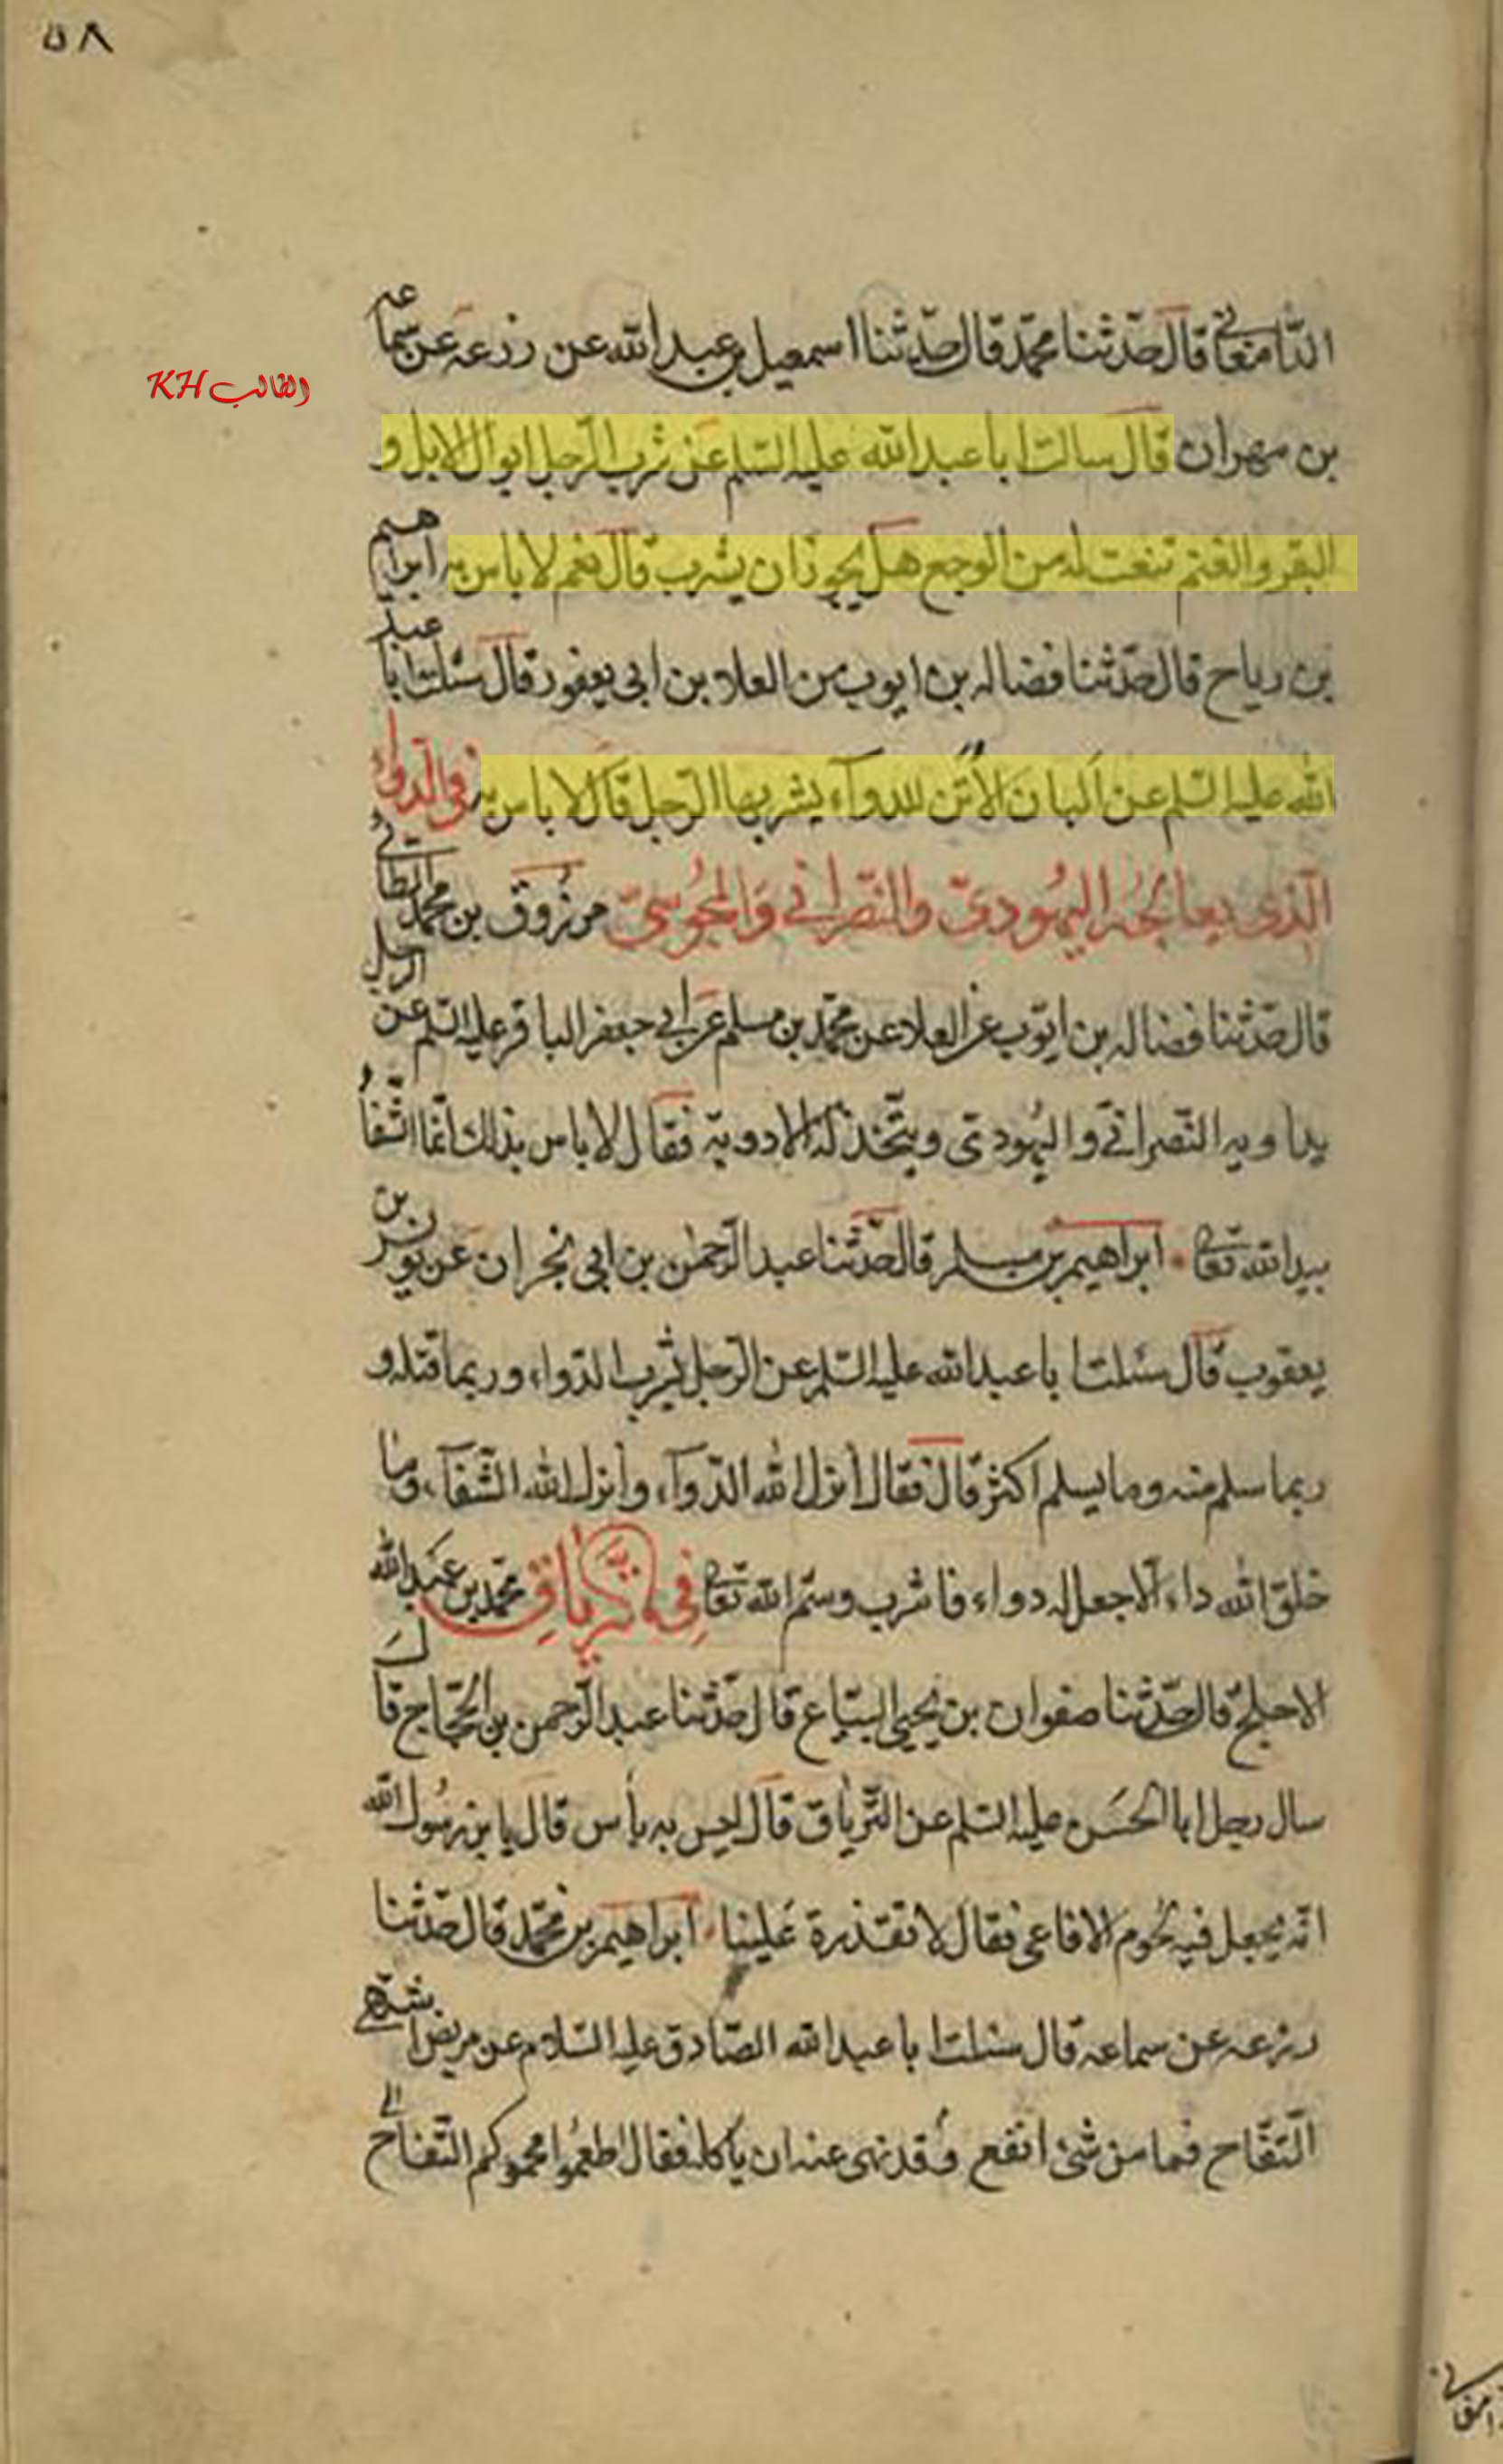 ٥٨
الدّامغاني قال حدّثنا محمّد قال حدّثنا اسمعيل بن عبدالله عن زرعه عن سماعه
الطالب KH
بن مهران قال سالت ابا عبدالله عليه السّلم عن شرب الرّجل ابوال الابل و
البقر والغنم تنعت له من الوجع هل يجوز ان يشرب قال نعم لا باس به ابراهيم
بن رياح قال حدّثنا فضاله بن ايوب عن العلا بن ابى يعفور قال سئلت ابا عبد
الله عليه السّلم عن ألبان الأتن للدوآء يشربها الرّجل قال لا باس به فى الدّواء
الّذى يعالجه اليهُودىّ والنّصرانى وَالمجُوسىّ مرزُوق بن محمد الطائى
قال حدّثنا فضاله بن ايّوب عن العلا عن محمّد بن مسلم عن ابى جعفر الباقر عليه السّلم عن الرجل
يداويه النّصرانّى واليهُودى ويتّخذ له الادويه فقال لا باس بذلك انّما الشّفاء
بيد الله تعالى ابراهيم بن مسلم قال حدّثنا عبد الرّحمٰن بن ابى نجران عن يونس بن
يعقوب قال سئلت ابا عبدالله عليه السّلم عن الرّجل يشرب الدّواء وربما قتله و
ربما سلم منه وما يسلم اكثر قال فقال أنزل الله الدّوآء وأنزل الله الشّفآء وما
خلق الله داء الّا جعل له دواء فاشرب وسمّ الله تعالى فِى التِّريَاقِ محمّد بن عبدالله
الاجلح قال حدّثنا صفوان بن يحيى البيّاع قال حدّثنا عبدالرّحمن بن الحجّاج قال
سال رجل ابا الحسَن عليه السّلم عن التّرياق قال ليس به بأس قال يا بن رسُول الله
انّه يجعل فيه لحُوم الافاعى فقال لا تقذره عَلينا ابراهيم بن محمّد قال حدّثنا
زرعه عن سماعه قال سئلت ابا عبدالله الصّادق عليه السّلام عن مريض اشتهى
التفّاح فما من شئ انفع وقد نهى عنه ان ياكله فقال اطعمُوا محموميكم التّفاح